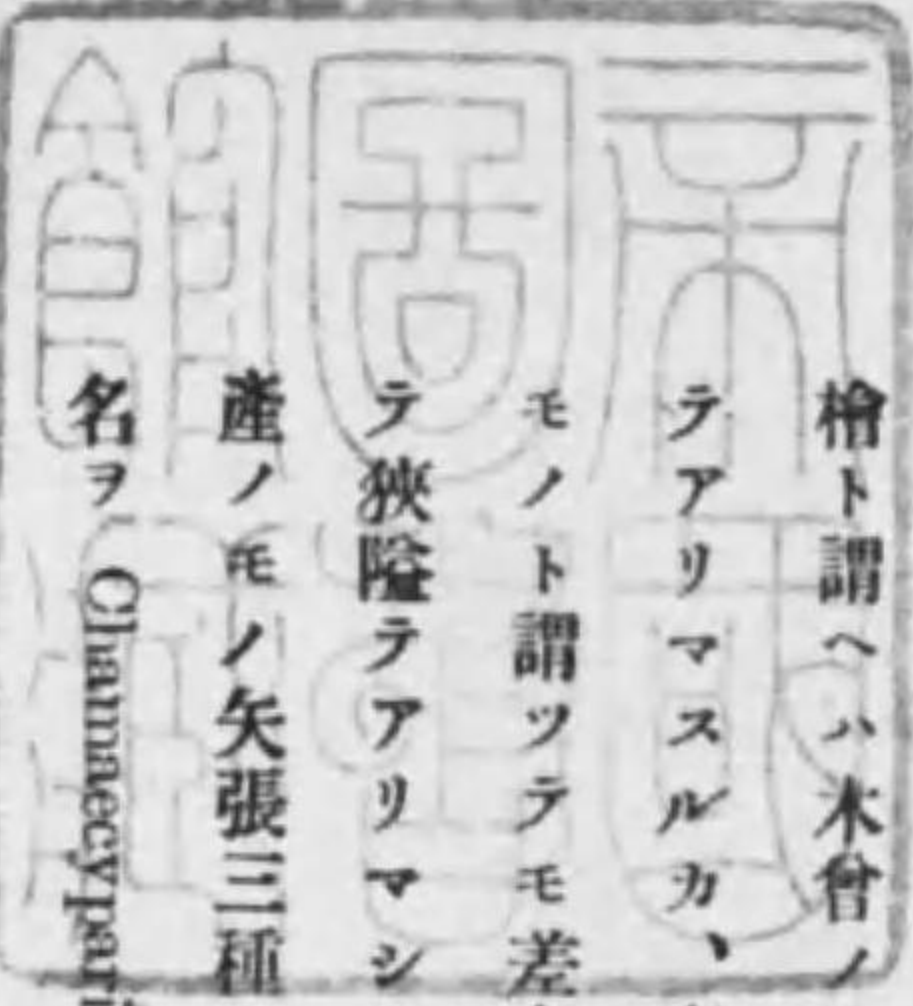 檜ト謂ヘハ木曾ノ
テアリマスルカ、
モノト謂ツテモ差
テ狹隘テアリマシ
產ノモノ矢張三種
名ヲ Chamaecypari